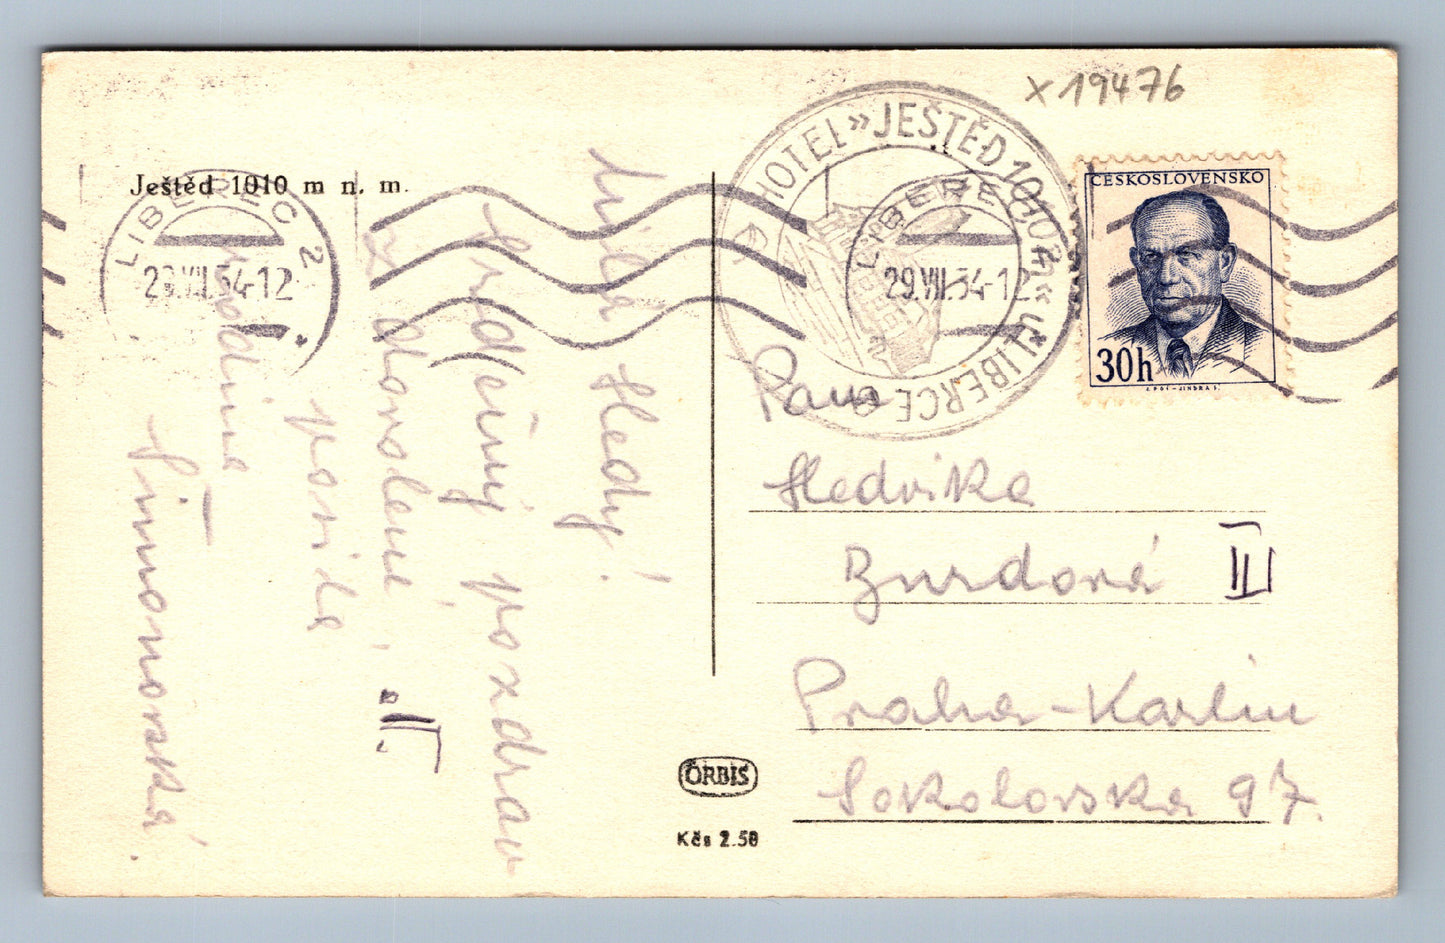 x 19476
Ještěd 1010 m n. m.
LIBEREC 2
29.VII.54-12
HOTEL »JEŠTĚD 1010 m« u LIBERCE
LIBEREC
29.VII.54-12
ČESKOSLOVENSKO
30h
Milá Hedy!
Srdečný pozdrav
z dovolené
posílá
rodina
Šimonovská.
Paní
Hedvika
Burdová III
Praha-Karlín
Sokolovská 97.
ORBIS
Kčs 2.50